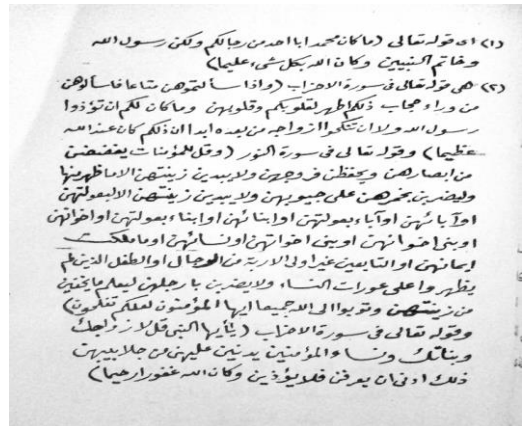 (١) اى قوله تعالى (ما كان محمد ابا احد من رجالكم ولكن رسول الله
وخاتم النبيين وكان الله بكل شىء عليما)
(٢) هى قوله تعالى فى سورة الاحزاب (واذا سألتموهن متاعا فاسألوهن
من وراء حجاب ذلكم اطهر لقلوبكم وقلوبهن وما كان لكم ان تؤذوا
رسول الله ولا ان تنكحوا ازواجه من بعده ابدا ان ذلكم كان عند الله
عظيما) وقوله تعالى فى سورة النور (وقل للمؤمنات يغضضن
من ابصارهن ويحفظن فروجهن ولا يبدين زينتهن الا ما ظهر منها
وليضربن بخمرهن على جيوبهن ولا يبدين زينتهن الا لبعولتهن
او آبائهن او آباء بعولتهن او ابنائهن او ابناء بعولتهن او اخوانهن
او بنى اخوانهن او بنى اخواتهن او نسائهن او ما ملكت
ايمانهن او التابعين غير اولى الاربة من الرجال او الطفل الذين لم
يظهروا على عورات النساء ولا يضربن بارجلهن ليعلم ما يخفين
من زينتهن وتوبوا الى الله جميعا ايها المؤمنون لعلكم تفلحون)
وقوله تعالى فى سورة الاحزاب (يأيها النبى قل لازواجك
وبناتك ونساء المؤمنين يدنين عليهن من جلابيبهن
ذلك ادنى ان يعرفن فلا يؤذين وكان الله غفورا رحيما)